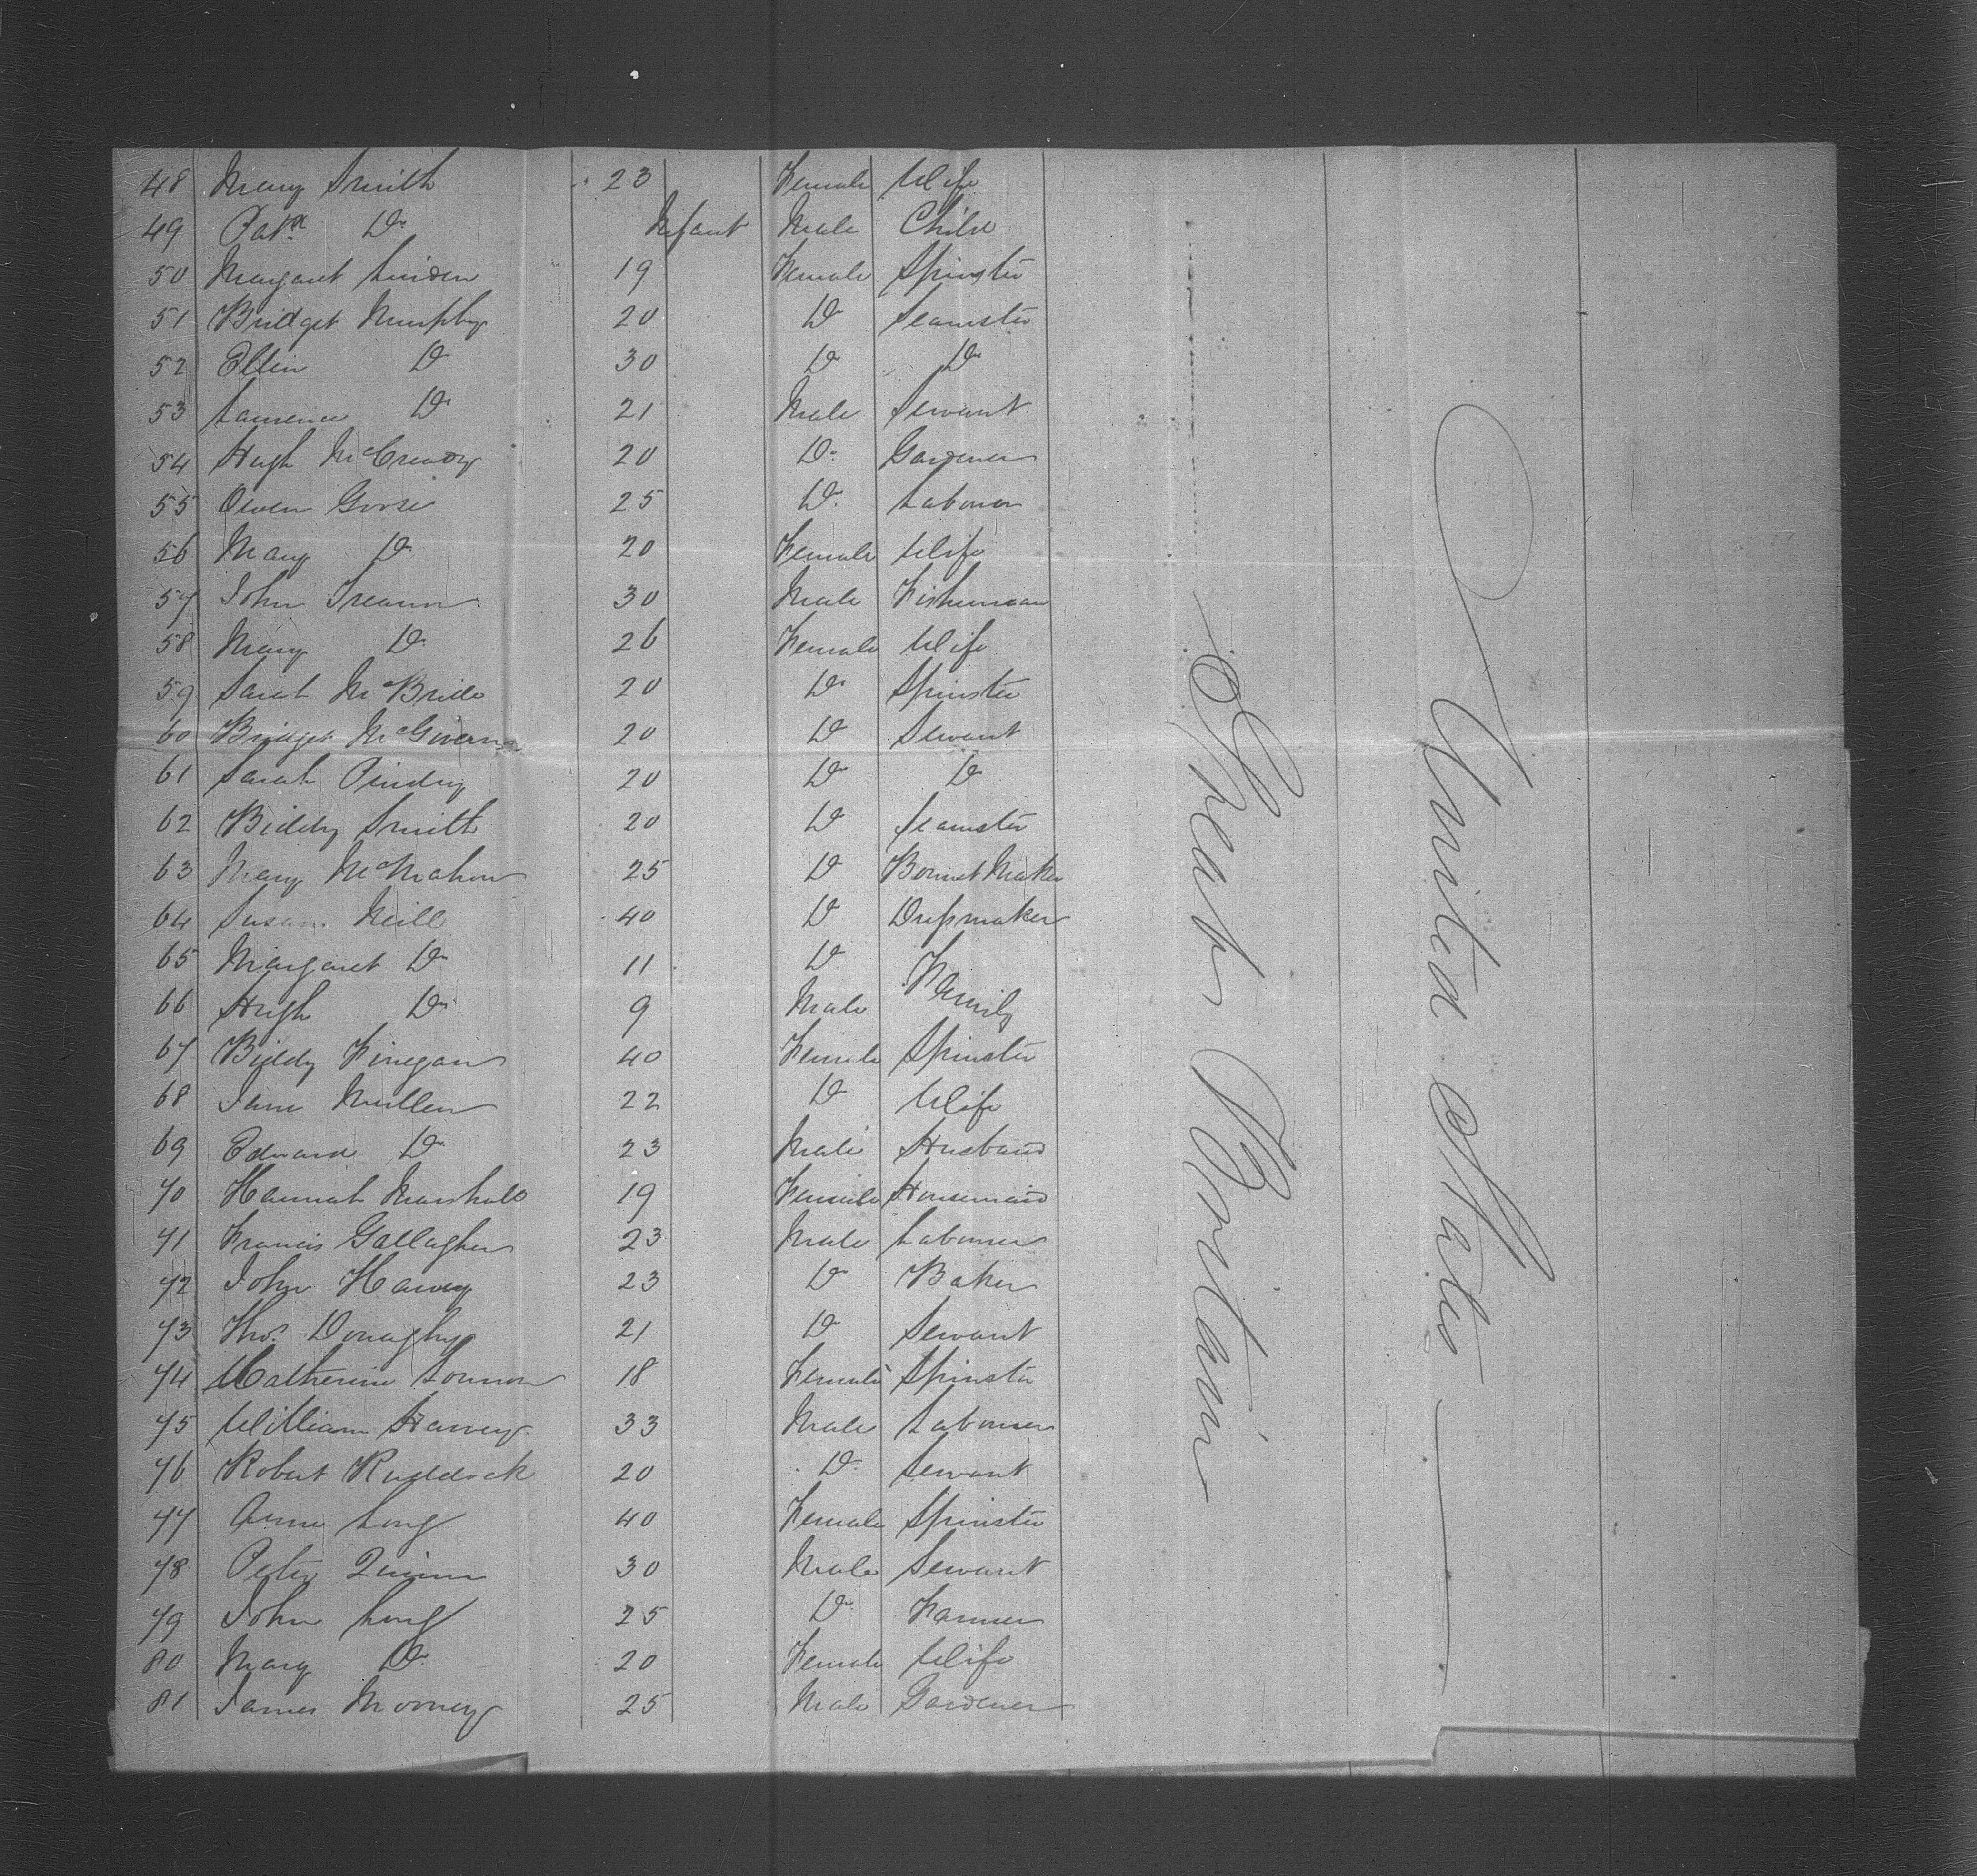 48 Mary Smith 23 Female Wife
49 Patk Do Infant Male Child
50 Margaret Linden 19 Female Spinster
51 Bridget Murphy 20 Do Seamster
52 Ellin Do 30 Do Do
53 Laurence Do 21 Male Servant
54 Hugh McCready 20 Do Gardener
55 Owen Goose 25 Do Labourer
56 Mary Do 20 Female Wife
57 John 30 Male Fisherman
58 Mary Do 26 Female Wife
59 Sarah McBride 20 Do Spinster
60 Bridget McGivern 20 Do Servant
61 Sarah 20 Do Do
62 Biddy Smith 20 Do Seamster
63 Mary McMahon 25 Do Bonnet Maker
64 Susan Neill 40 Do Dressmaker
65 Margaret Do 11 Do Family
66 Hugh Do 9 Male
67 Biddy Finegan 40 Female Spinster
68 Jane Mullen 22 Do Wife
69 Edward Do 23 Male Husband
70 Hannah Marshall 19 Female Housemaid
71 Francis Gallagher 23 Male Labourer
72 John Harvey 23 Do Baker
73 Thos. Donaghy 21 Do Servant
74 Catherine 18 Female Spinster
75 William Harvey 33 Male Labourer
76 Robert Ruddock 20 Do Servant
77 Anne Long 40 Female Spinster
78 Peter Quinn 30 Male Servant
79 John Long 25 Do Farmer
80 Mary Do 20 Female Wife
81 James Mooney 25 Male Gardener
Great Britain
United States